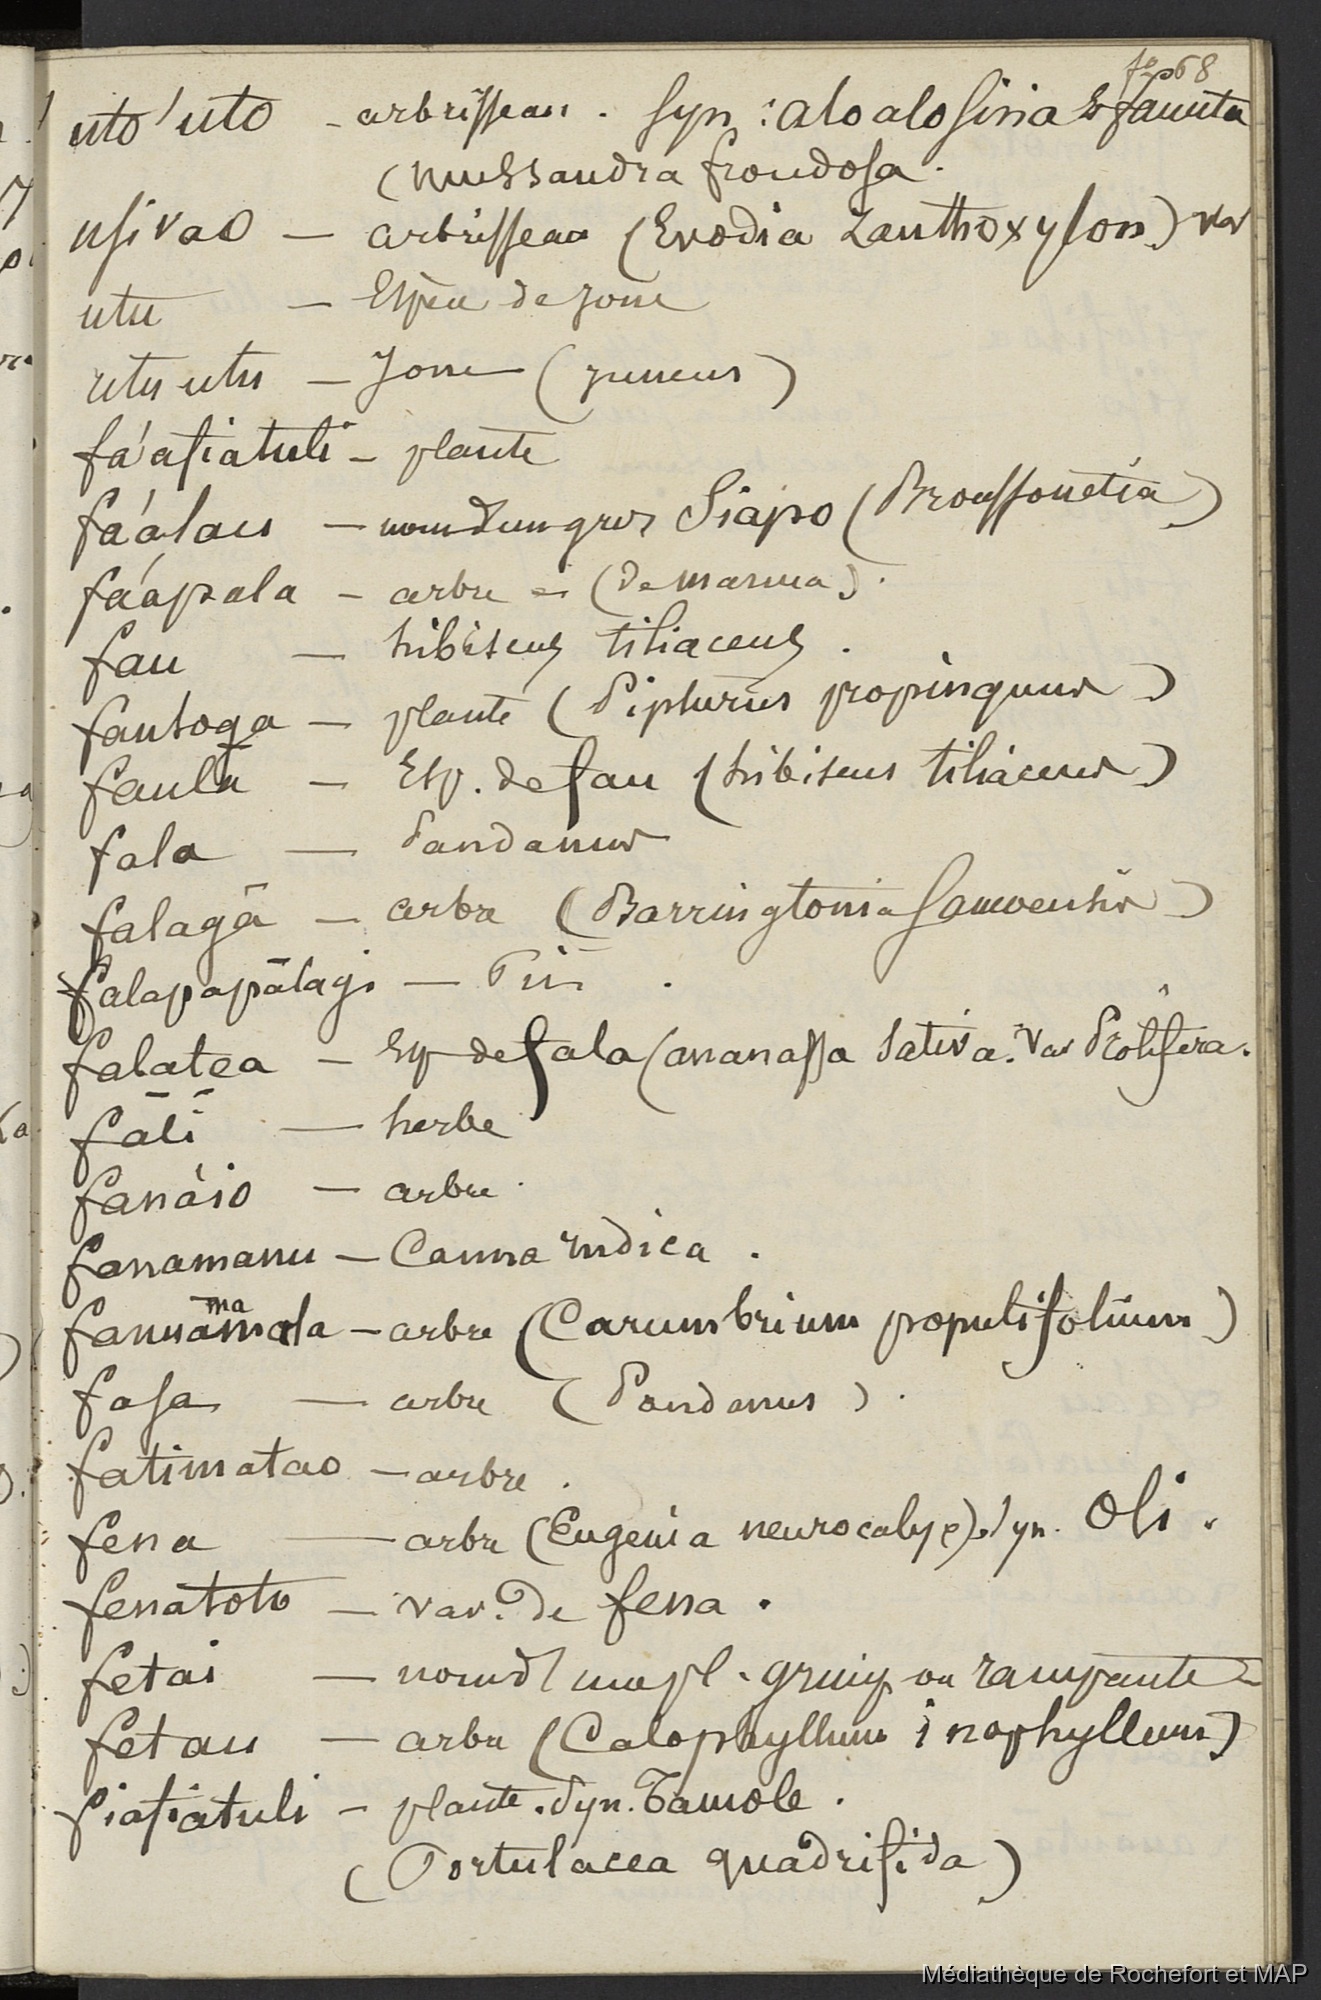 fo 68
uto'uto - arbrisseau. Syn: aloalosina & fauuta
(Mussaudra frondosa.
usivao - arbrisseau (Evodia Zanthoxylon) var
utu - Espèce de Jonc
utu utu - Jonc (juncus)
fá'afiatuli - plante
fá'alau - nom d'un gros Siapo (Broussonetia)
fáápala - arbre (de Manua).
fau - hibiscus tiliaceus.
fausoga - plante (Pipturus propinquus)
faulū - Esp. de fau (hibiscus tiliaceus)
fala - Pandanus
falagā - arbre (Barringtonia Samoensis)
falapapālagi - Pin.
falatea - Esp de fala (ananassa Sativa. Var Prolifera.
fālī - herbe
fanáio - arbre.
fanamanu - Canna indica.
ma
fanuāmala - arbre (Carumbrium populifolium)
fasa - arbre (Pandanus).
fatimatao - arbre.
fena - arbre (Eugenia neurocalyx). Syn. Oli.
fenatoto - var. de fena.
fetai - nom d'une pl. grimp. ou rampante
fetau - arbre (Calophyllum inophyllum)
fiafiatuli - plante. Syn. Tamole.
(Portulacea quadrifida)
Médiathèque de Rochefort et MAP